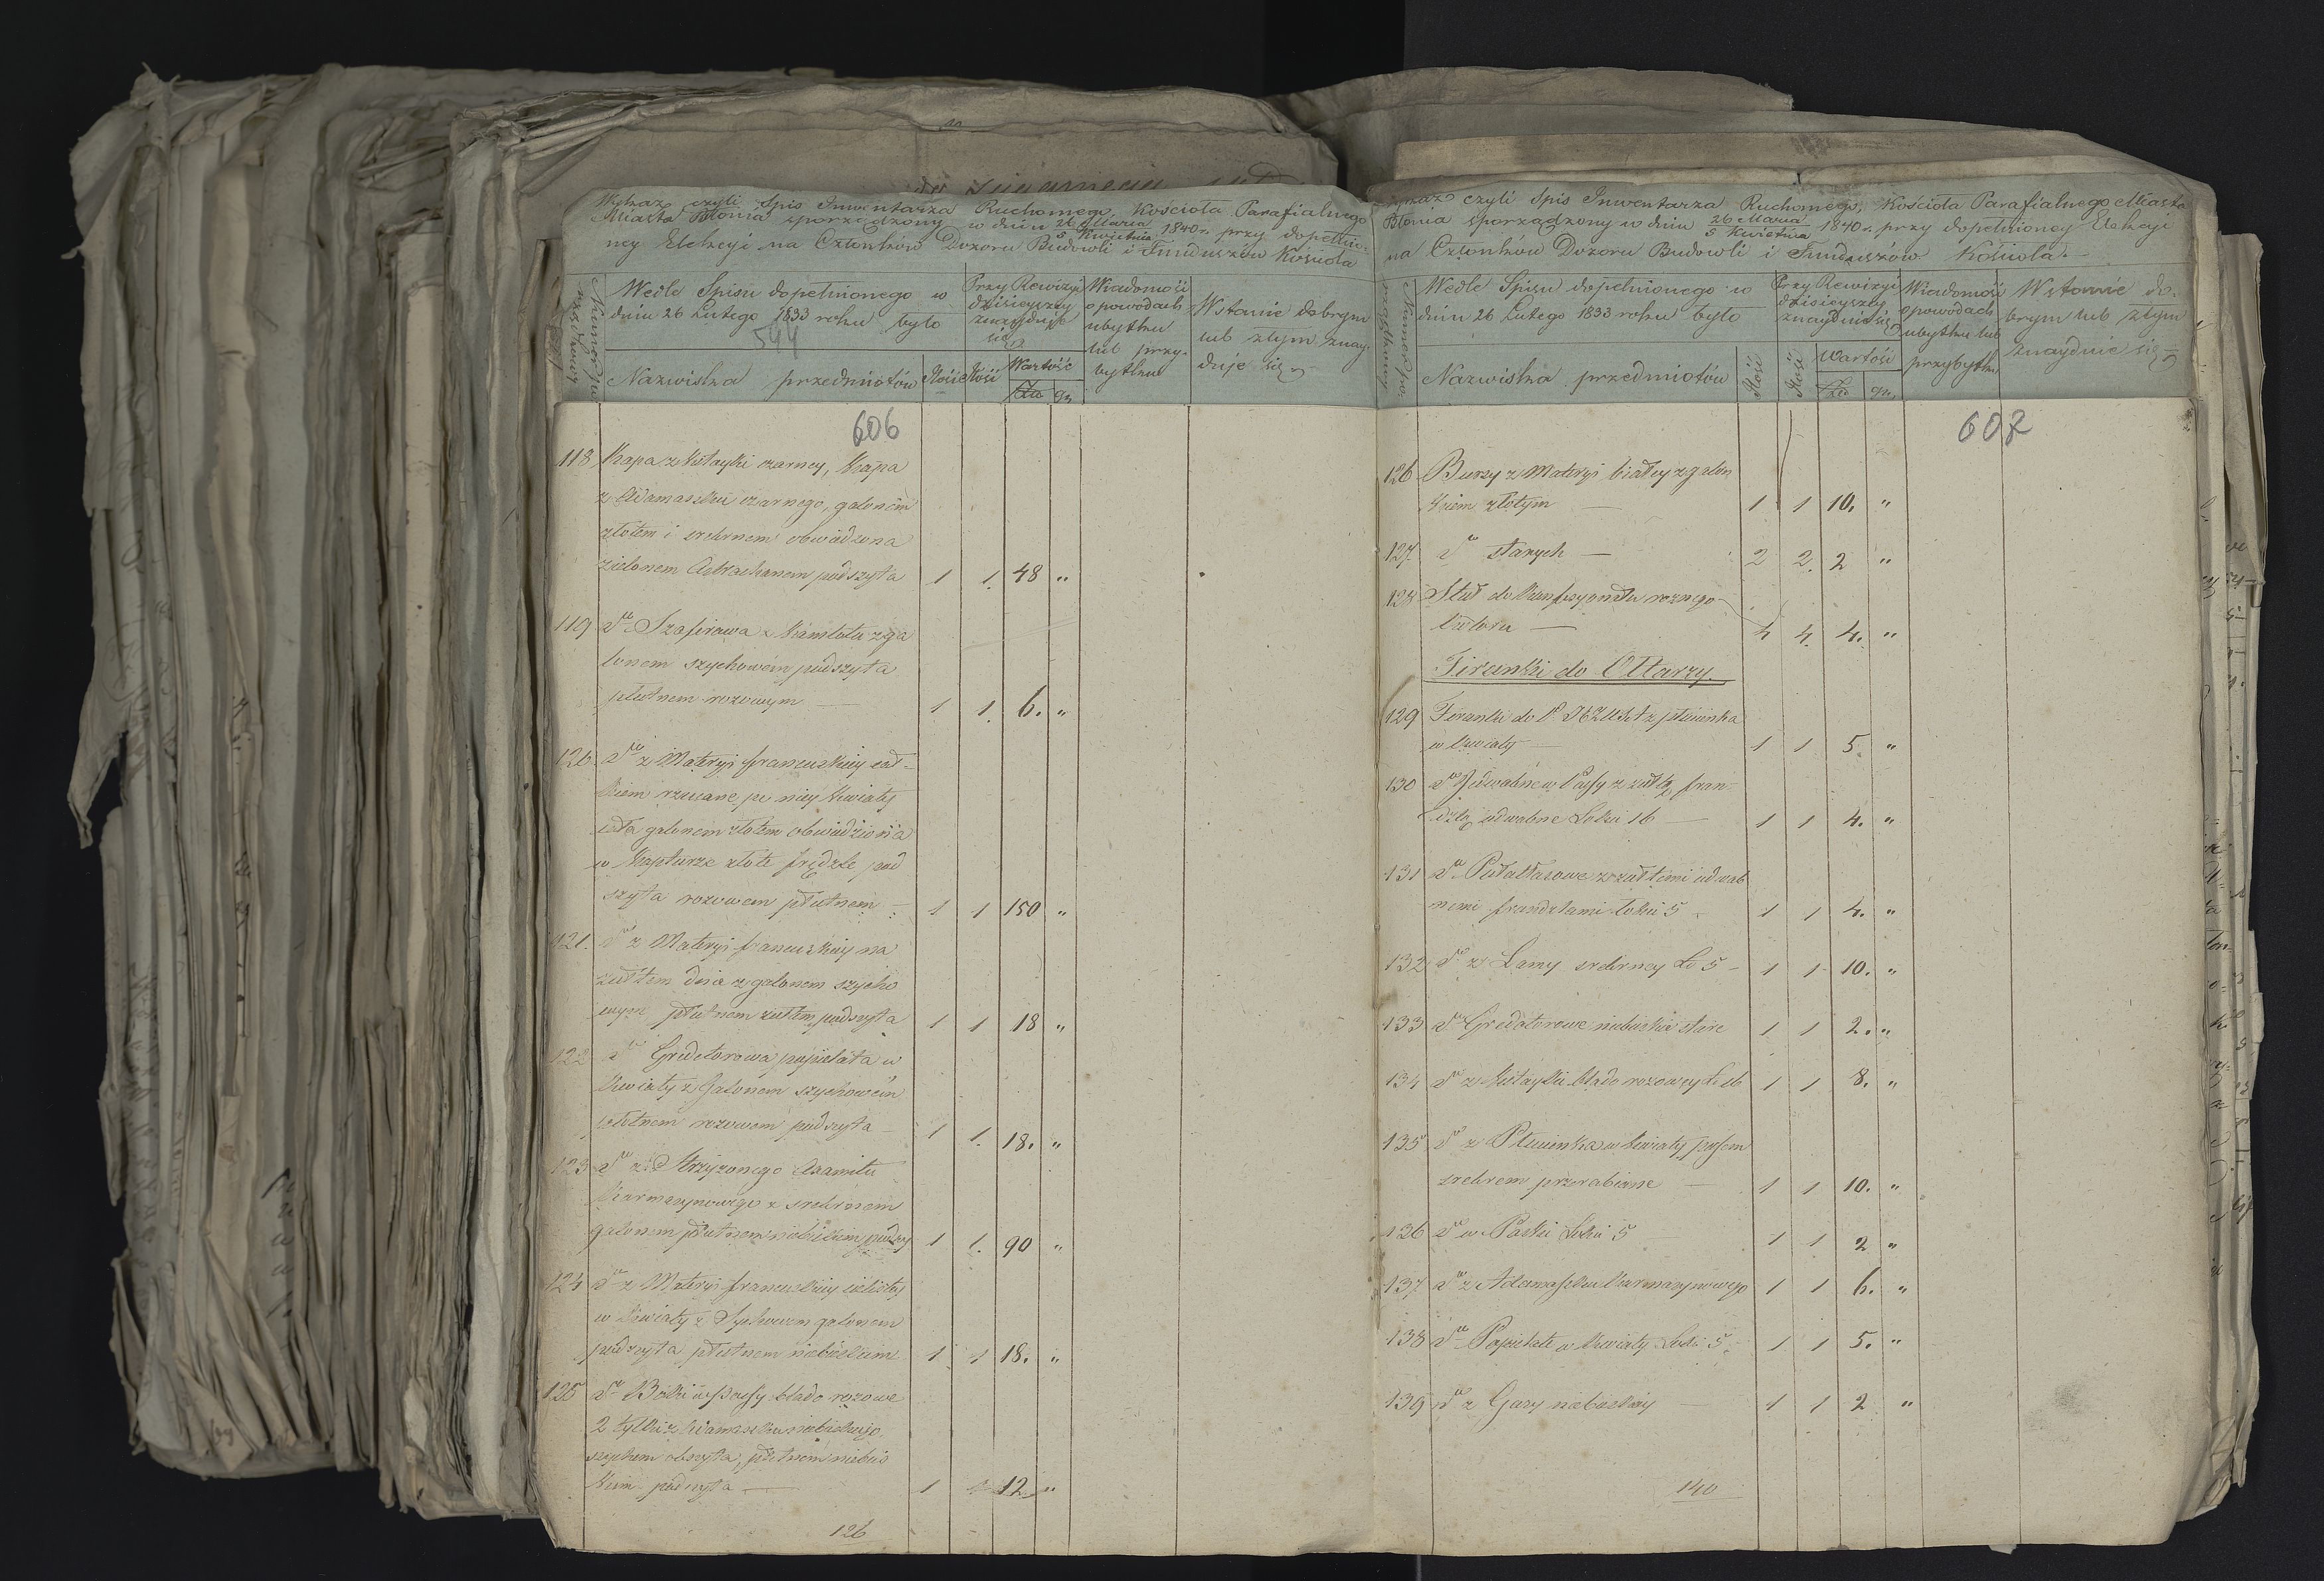 Wykaz czyli Spis Inwentarza Ruchomego, Kościoła Parafialnego
Miasta Błonia sporządzony w dniu 26 Marca / 5 Kwietnia 1840 r. przy dopełnio-
ney Elekcyi na Członków Dozoru Budowli i Funduszów Kościoła
Numer porządkowy
Wedle Spisu dopełnionego w
dniu 26 Lutego 1833 roku było
544
Przy Rewizyi
dzisieyszey
znayduje
się
Wiadomość
o powodach
ubytku
lub przy-
bytku
W stanie dobrym
lub złym znay-
duje się
Nazwiska przedmiotów
Ilość
Ilość
Wartość
Złp
gr.
606
118 Kapa z Kitayki czarney, Kapa
z Adamaszku czarnego, galonem
złotem i srebrnem obwiedzona
zielonem Astrachanem podszyta 1 1. 48 "
119 dto Szafirowa z Kamlotu z ga
lonem szychowém podszyta
płutnem rozowym — 1 1. 6. "
120. dto z Materyi francuskiey
rzucane po niey Kwiaty
cała galonem złotem obwiedziona
w Kapturze złote frędzle pod
szyta rozowem płutnem — 1 1 150 "
121. dto z Materyi francuzkiey na
żułtem dnie z galonem szycho
wym, płutnem żułtem podszyta 1 1 18 "
122 dto Gredetorowa popielata w
Kwiaty z Galonem szychowém
płutnem rozowem podszyta 1 1. 18. "
123 dto z Strzyżonego Axamitu
Karmazynowego z srebrnem
galonem płutnem niebieskim podszy 1 1. 90 "
124 dto z Materyi francuskiey
w Kwiaty z Sychowem galonem
podszyta płutnem niebieskiem 1 1 18. "
125 dto Boki w Passy blado rozowe
2 tyłki z Adamaszku niebieskiego,
szychem obszyta, płutnem niebies
kim podszyta — 1 1 12 "
126
Wykaz czyli Spis Inwentarza Ruchomego, Kościoła Parafialnego Miasta
Błonia sporządzony w dniu 26 Marca / 5 Kwietnia 1840 r. przy dopełnioney Elekcyi
na Członków Dozoru Budowli i Funduszów Kościoła.
Numer porządkowy
Wedle Spisu dopełnionego w
dniu 26 Lutego 1833 roku było
Przy Rewizyi
dzisieyszey
znayduie się
Wiadomość
o powodach
ubytku lub
przybytku
W stanie do-
brym lub złym
znayduie się
Nazwiska przedmiotów
Ilość
Ilość
Wartość
Złp
gr.
607
126 Bursy z Materyi białey z galon
kiem złotym — 1 1 10. "
127. dto starych — 2 2. 2 "
128 Stuł do Konfesyonału roznego
koloru — 4 4. 4. "
Firanki do Ołtarzy.
129 Firanki do P. JEZUSA z płócienka
w kwiaty — 1 1 5. "
130 dto Jedwabne w Passy z żułtą fran-
dzlą jedwabne Łokci 16 — 1 1 4. "
131 dto Pułatłasowe z żułtemi jedwab
nemi frandzlami łokci 5 1 1 4. "
132 dto z Lamy srebrney Ło 5 — 1 1 10. "
133 dto Gredotorowe niebieskie stare 1 1 2. "
134 dto z Kitayki blado rozowey Łok 1 1 8. "
135 dto z Płucienka w kwiaty passem
srebrem przerabiane — 1 1 10. "
136 dto w Paski Łokci 5 1 1 2 "
137 dto z Adamaszku Karmazynowego 1 1 6. "
138 dto Popielate w kwiaty Łokci 5. 1 1 5. "
139 dto z Gazy niebieskiey 1 1 2 "
140